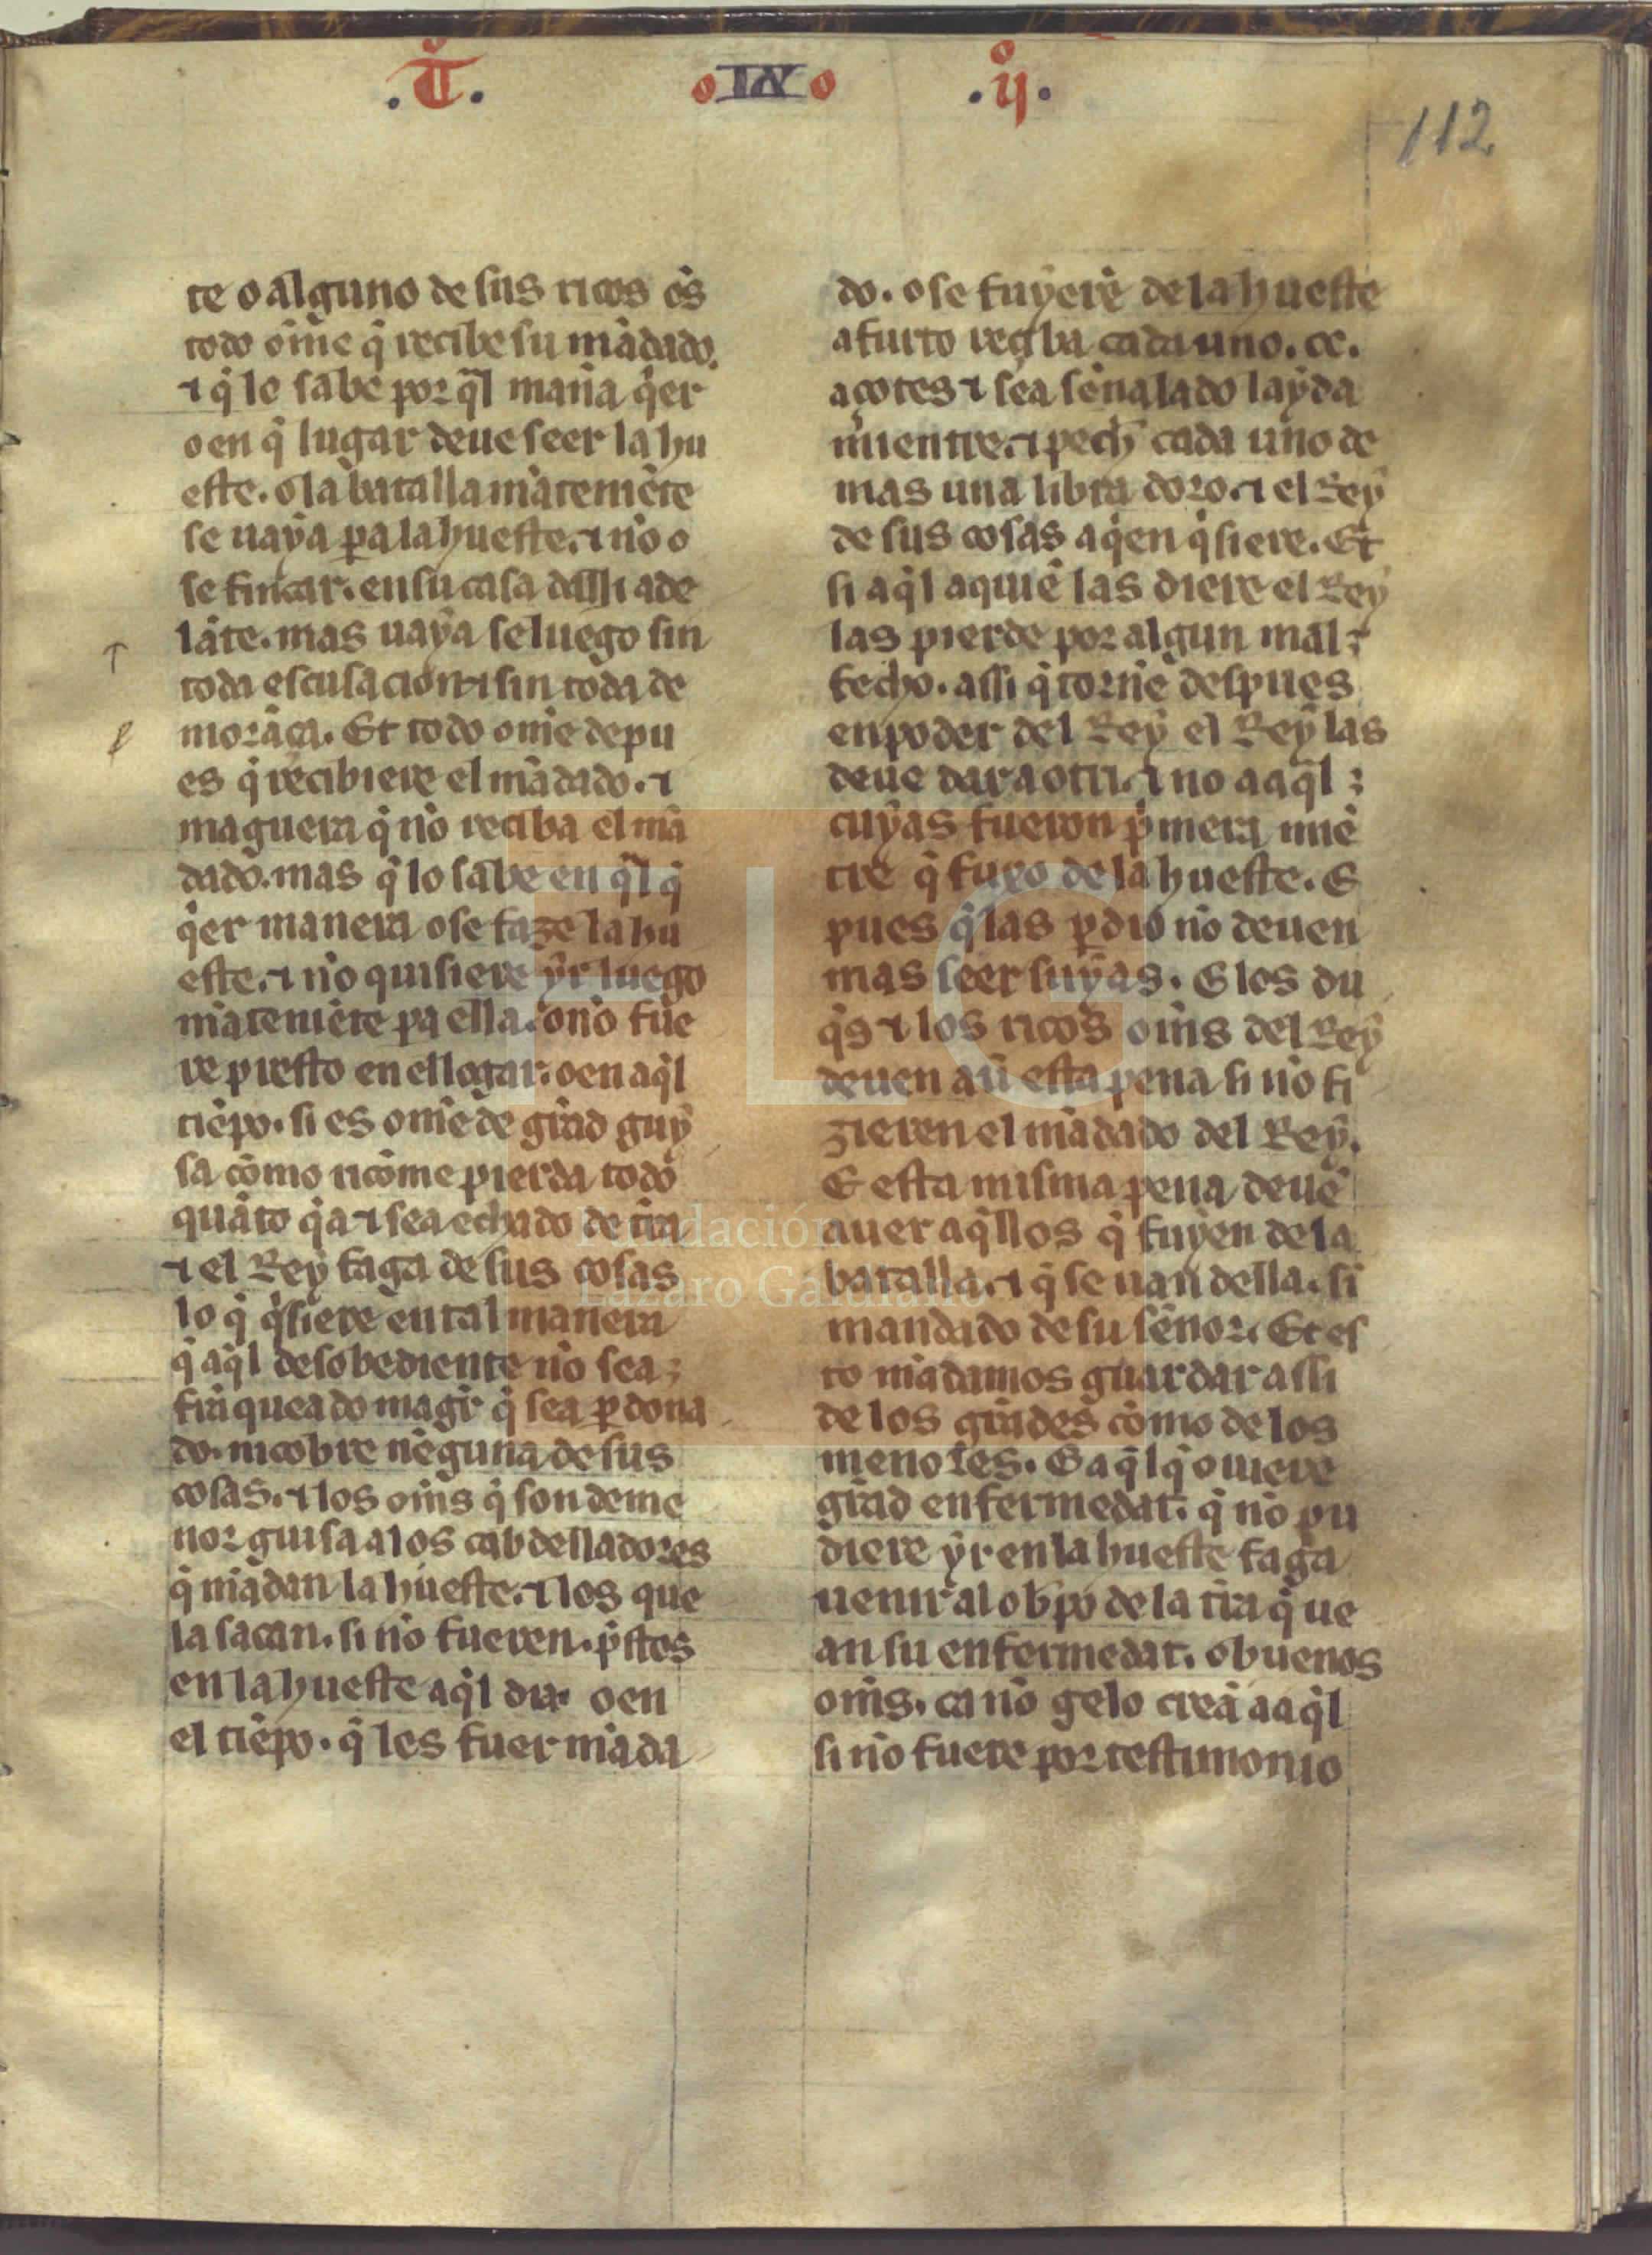 .T̊. oIXo .ẙ.
112
te o alguno de sus ricos om̃s
todo om̃e q̇ recibe su mãdado.
⁊ q̇ lo sabe por q̃l maña q̇er
o en q̇ lugar deue seer la hu
este. o la batalla mãteniẽte
se uaya pa la hueste. ⁊ nõ o
se fincar. en su casa dalli ade
lãte. mas uaya se luego sin
toda escusacion ⁊ sin toda de
morãça. Et todo om̃e depu
es q̇ recibiere el mãdado. ⁊
maguera q̇ nõ reciba el mã
dado. mas q̇ lo sabe en q̃l q̇
q̇er manera o se faze la hu
este. ⁊ nõ quisiere yr luego
mãteniẽte pa ella. o nõ fue
re presto en el logar. o en aq̇l
tiẽpo. si es om̃e de grãd guy
sa cõmo ricome pierda todo
quãto q̇a ⁊ sea echado de tr̃a
⁊ el Rey faga de sus cosas
lo q̇ q̇siere en tal manera
q̇ aq̇l desobediente nõ sea
frãqueado mag̃r q̇ sea ꝑdona
do. ni cobre nẽguna de sus
cosas. ⁊ los om̃s q̇ son de me
nor guisa a los cabdelladores
q̇ mãdan la hueste. ⁊ los que
la sacan. si nõ fueren. p̃stos
en la hueste aq̇l dia o en
el tiẽpo. q̇ les fuer mãda
do. o se fuyerẽ de la hueste
a furto reçiba cada uno. cc.
açotes ⁊ sea señalado layda
mientre. ⁊ pech̃ cada uno de
mas una libra doro. ⁊ el Rey
de sus cosas a q̇en q̇siere. Et
si aq̇l a quiẽ las diere el Rey
las pierde por algun mal
fecho. assi q̇ tornẽ despues
en poder del Rey el Rey las
deue dar a otri. ⁊ no a aq̇l
cuyas fueron p̃mera miẽ
tre q̇ fuxo de la hueste. E
pues q̇ las ꝑdio nõ deuen
mas seer suyas. E los du
q̇s ⁊ los ricos om̃s del Rey
deuen aũ esta pena si nõ fi
zieren el mãdado del Rey.
E esta misma pena deuẽ
auer aq̇llos q̇ fuyen de la
batalla. ⁊ q̇ se uan della. si
mandado de su señor. Et es
to mãdamos guardar assi
de los grãdes cõmo de los
menores. E aq̇l q̇ ouiere
grãd enfermedat. q̇ nõ pu
diere yr en la hueste faga
uenir al obp̃o de la tr̃a q̇ ue
an su enfermedat. o buenos
om̃s. ca nõ gelo creã a aq̇l
si nõ fuere por testimonio
FLG
Fundación
Lázaro Galdiano